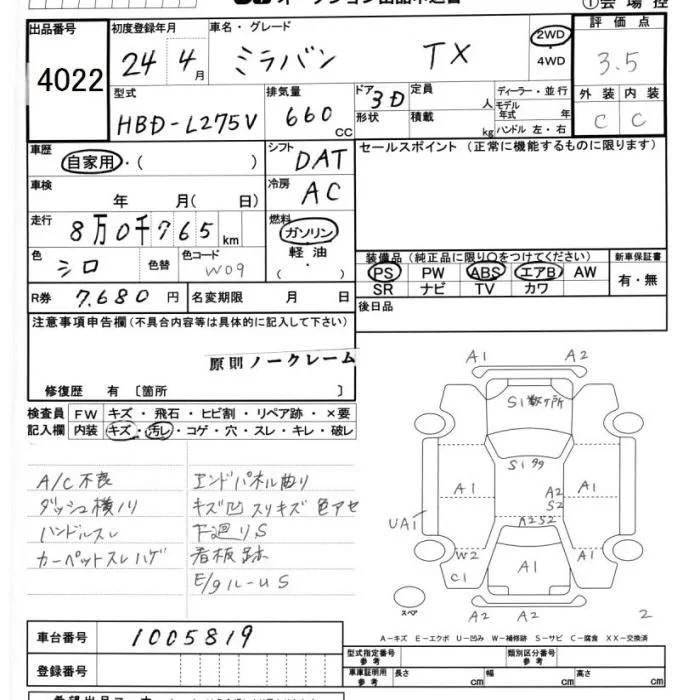 オークション出品申込書
①会場控
出品番号
4022
初度登録年月
24年4月
車名・グレード
ミラバン TX
2WD
4WD
評価点
3.5
型式
HBD-L275V
排気量
660 CC
ドア 3D
形状
定員 人
積載 kg
ディーラー・並行
モデル年式 年
ハンドル 左・右
外装 内装
C C
車歴
自家用・( )
シフト
DAT
セールスポイント (正常に機能するものに限ります)
車検
年 月( 日)
冷房
AC
走行
8万0千765 km
燃料
ガソリン
軽油
( )
色
シロ
色替
色コード
W09
装備品 (純正品に限り○をつけてください)
新車保証書
PS PW ABS エアB AW
SR ナビ TV カワ
有・無
R券 7,680 円
名変期限 月 日
後日品
注意事項申告欄(不具合内容等は具体的に記入して下さい)
原則ノークレーム
修復歴 有 〔箇所 〕
検査員記入欄
FW キズ・飛石・ヒビ割・リペア跡・×要
内装 キズ・汚レ・コゲ・穴・スレ・キレ・破レ
A/C不良
ダッシュ横ノリ
ハンドルスレ
カーペットスレハゲ
エンドパネル曲り
キズ凹 スリキズ 色アセ
下廻りS
看板跡
E/gルーuS
A1 A2
S1数ヶ所
S1タタ
A1 A2 A1
S2
UA1
A2S2
W2
C1 A1 A1
スペア
A2 A2
2
A-キズ E-エクボ U-凹み W-補修跡 S-サビ C-腐食 XX-交換済
車台番号 1005819
登録番号
型式指定番号 参考
類別区分番号 参考
車庫証明用 参考
長さ cm 幅 cm 高さ cm